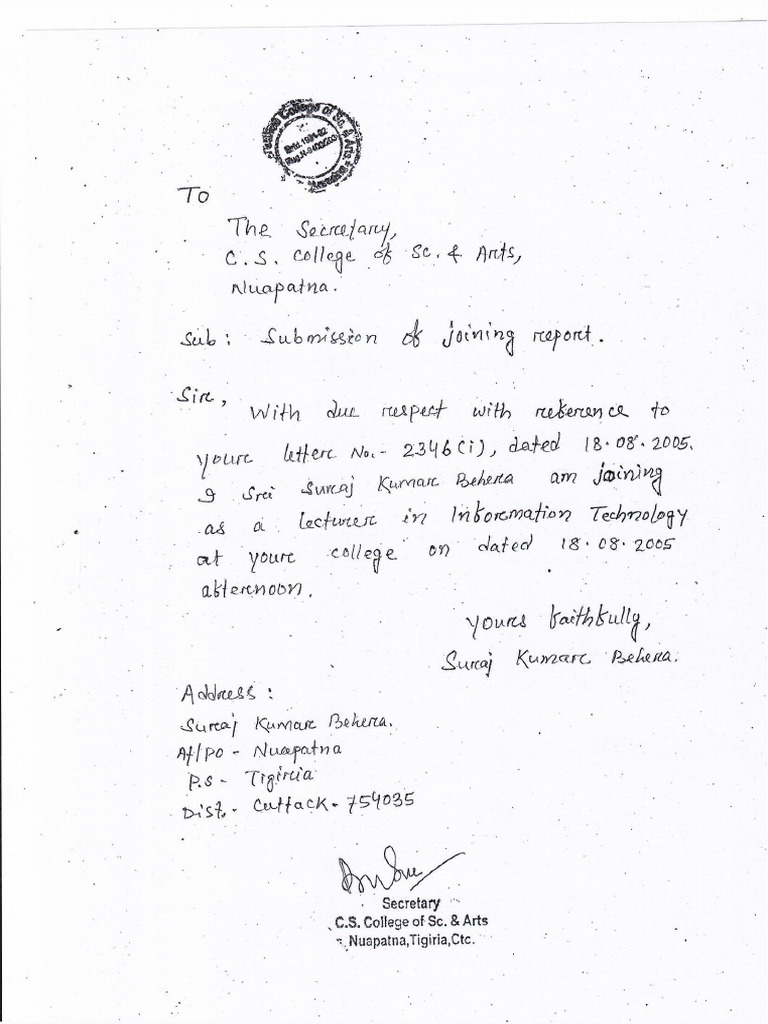 College of Sc. & Arts
Estd.1981-82
To
The Secretary,
C.S. College of Sc. & Arts,
Nuapatna.
Sub: Submission of joining report.
Sir,
With due respect with reference to
your letter No.- 2346(i), dated 18.08.2005.
I Sri Suraj Kumar Behera am joining
as a lecturer in Information Technology
at your college on dated 18.08.2005
afternoon.
Yours faithfully,
Suraj Kumar Behera.
Address:
Suraj Kumar Behera.
At/PO - Nuapatna
P.S - Tigiria
Dist. - Cuttack - 754035
Secretary
C.S. College of Sc. & Arts
Nuapatna,Tigiria,Ctc.